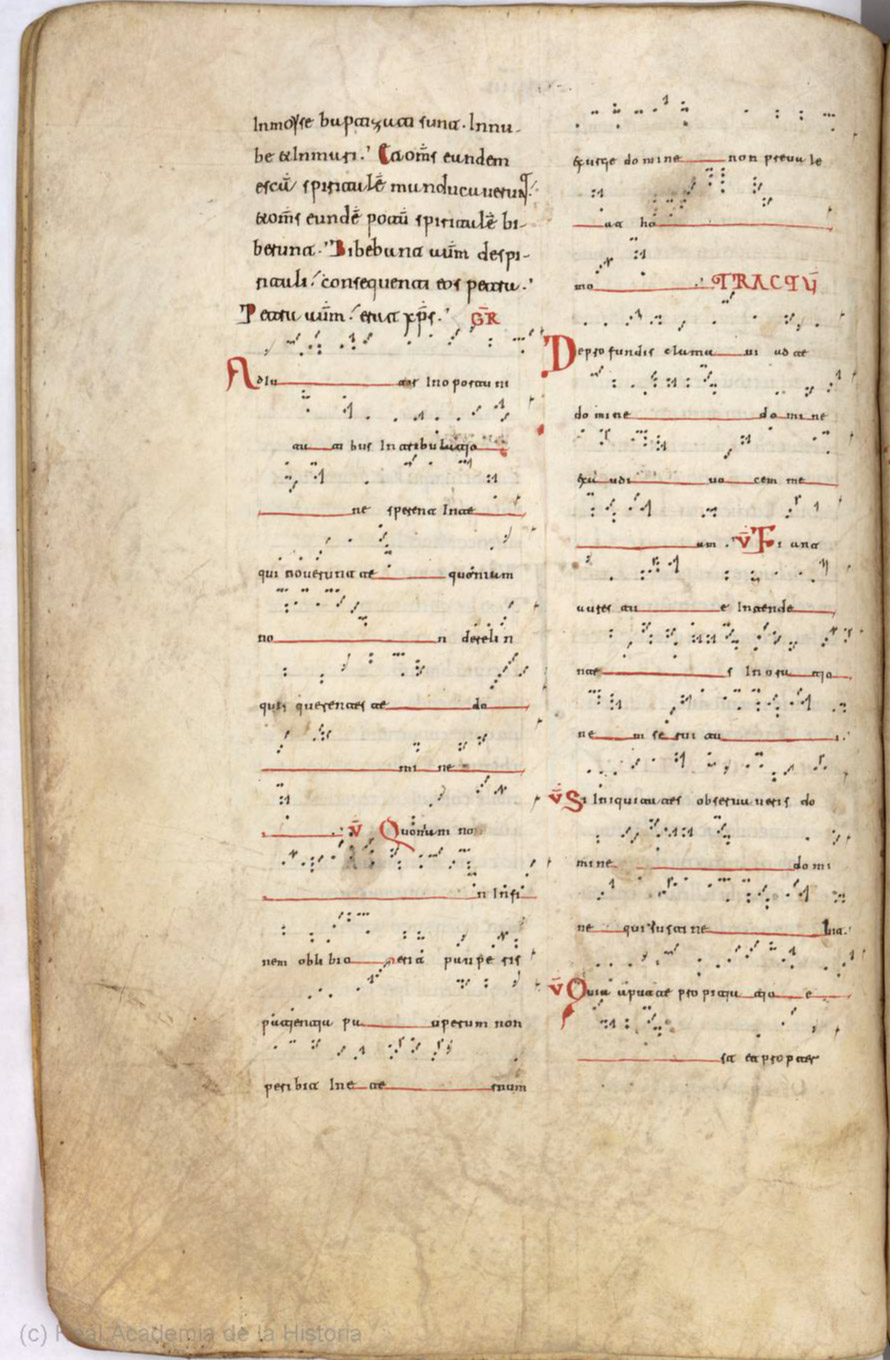 In moyse baptizati sunt. In nu-
be & in mari. Et om̄s eundem
escā spiritalē manducaverunt.
& om̄s eundē potū spiritalē bi-
berunt. Bibebant aūm de spi-
ritali consequenti eos petra.
Petra aūm erat xp̄s. GR
Adiu tor in oportuni
ta ti bus in tribulatio
ne sperent in te
qui noverunt te quoniam
no n dereli n
quis querentes te do
mi ne
V̄ Quoniam no
n in fi
nem oblibio erit paupe ris
patientia pa uperum non
peribit in e te rnum
exurge domine non prevale
at ho
mo TRACTŪ
De profundis clama vi ad te
domine domine
exa udi vo cem me
am. V̄ Fi ant
aures tu e intende
nte s in ora tio
ne m servi tu i.
V̄ Si iniquitates observaveris do
mine domi
ne quis susti ne bit.
V̄ Quia aput te propitia tio e
st et propter
(c) Real Academia de la Historia